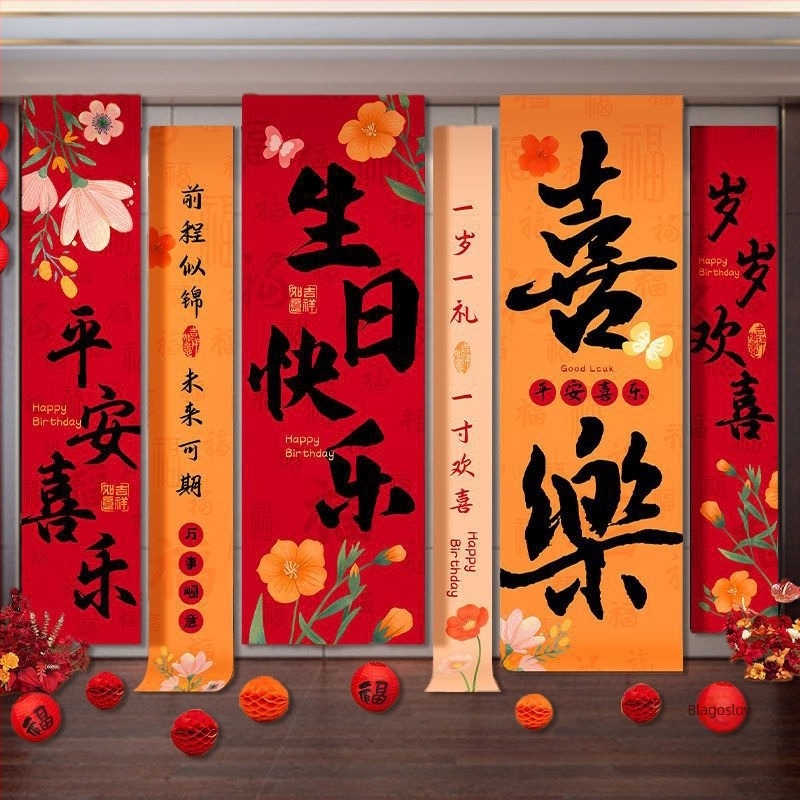 平安喜乐
Happy
Birthday
吉祥
如意
前程似锦
未来可期
万事顺意
生日快乐
吉祥
如意
Happy
Birthday
一岁一礼
一寸欢喜
Happy
Birthday
喜樂
Good Lcuk
平安喜乐
岁岁欢喜
Happy
Birthday
福
福
Blagoslov